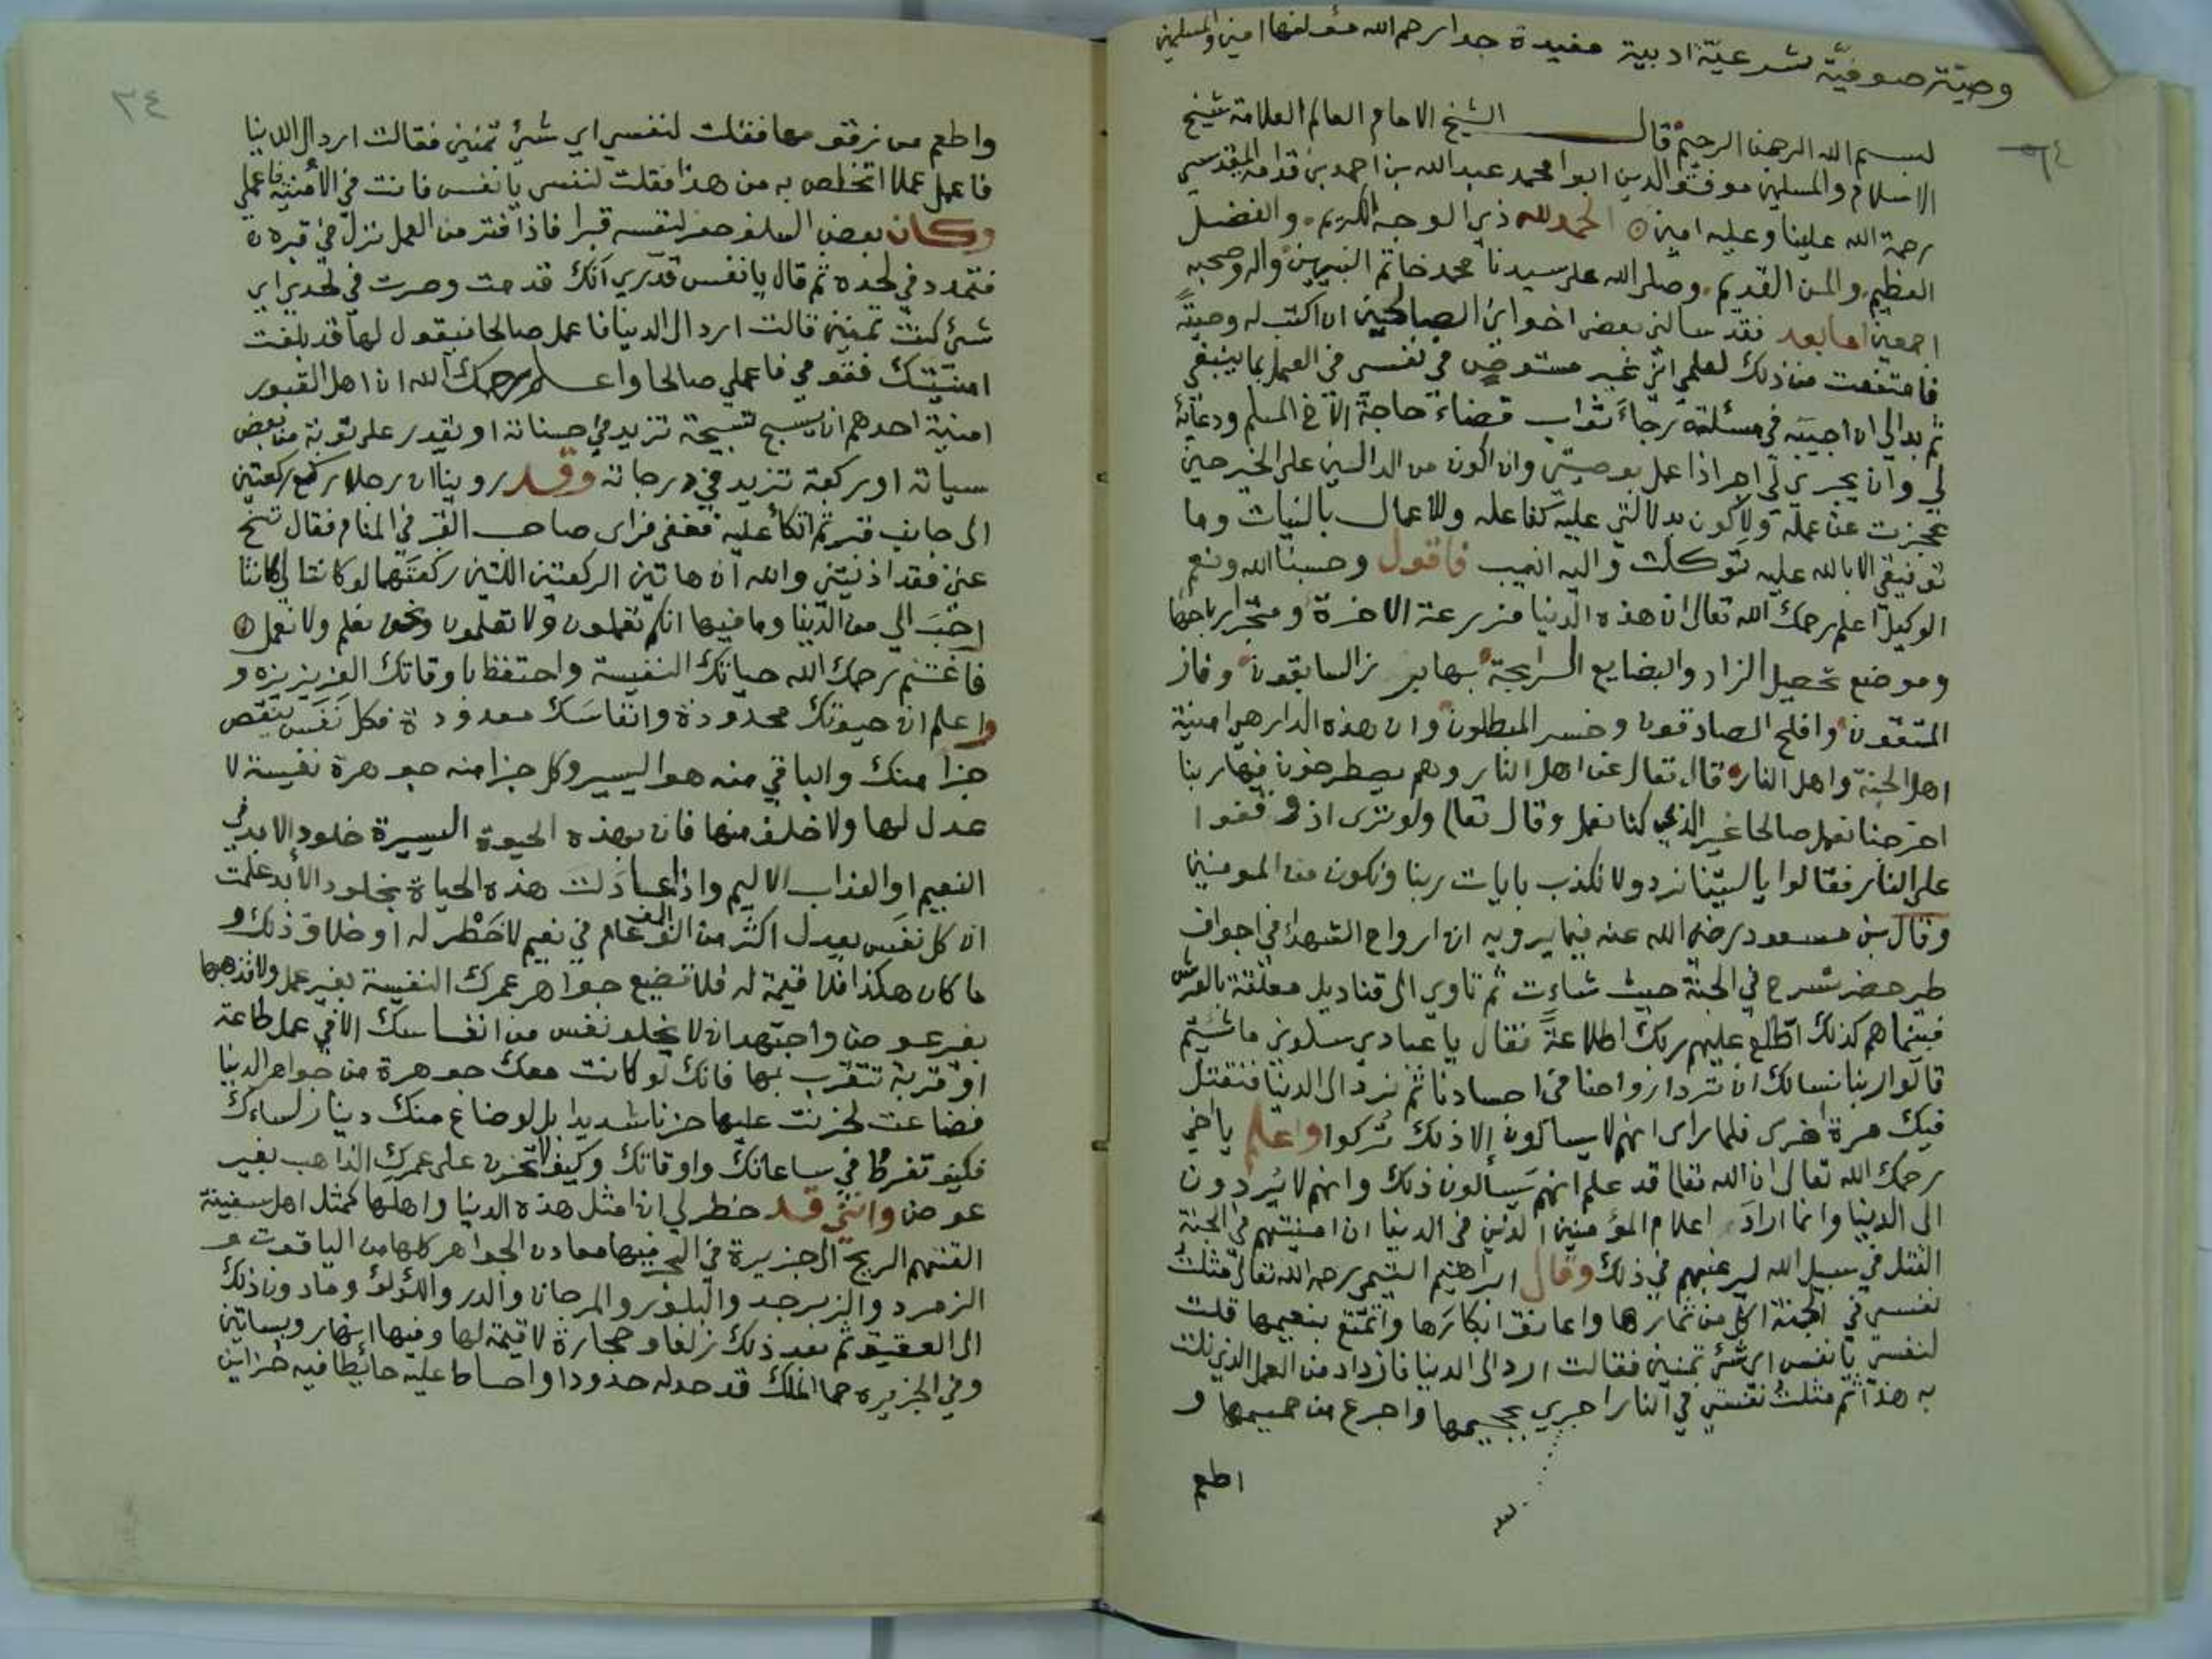 وصيّة صوفيّة شرعيّة ادبية مفيدة جدا رحم الله مؤلفها امين والمسلمين
٦٤
بسم الله الرحمن الرحيم قال الشيخ الامام العالم العلامة شيخ
الاسلام والمسلمين موفق الدين ابوا محمد عبد الله بن احمد بن قدامة المقدسي
رحمة الله علينا وعليه امين الحمد لله ذي الوجه الكريم والفضل
العظيم والمن القديم وصلى الله على سيدنا محمد خاتم النبيين واله وصحبه
اجمعين اما بعد فقد سالني بعض اخواني الصالحين ان اكتب له وصيّةً
فامتنعت من ذلك لعلمي انّي غير مستوص في نفسي في العمل بما ينبغي
ثم بدا لي ان اجيبَه في مسئلته رجاءَ ثواب قضاء حاجة الاخ المسلم ودعائه
لي وان يجري لي اجر اذا عمل بوصيتي وان اكون من الدالين على الخير حين
عجزت عن عمله ولاكون بدلالتي عليه كفاعله والاعمال بالنيات وما
توفيقي الا بالله عليه توكلت واليه انيب فاقول وحسبنا الله ونعم
الوكيل اعلم رحمك الله تعالى ان هذه الدنيا مزرعة الاخرة ومتجر ارباحها
وموضع تحصيل الزاد والبضايع الربحة بها برز السابقون وفاز
المتقون وافلح الصادقون وخسر المبطلون وان هذه الدار هي امنية
اهل الجنة واهل النار قال تعالى عن اهل النار وهم يصطرخون فيها ربنا
اخرجنا نعمل صالحا غير الذي كنا نعمل وقال تعالى ولو ترى اذ وقفوا
على النار فقالوا يا ليتنا نرد ولا نكذب بايات ربنا ونكون من المومنين
وقال بن مسعود رضي الله عنه فيما يرويه ان ارواح الشهدا في اجواف
طير خضر تسرح في الجنة حيث شاءت ثم تاوي الى قناديل معلقة بالعرش
فبينما هم كذلك اطّلع عليهم ربك اطلاعةً فقال يا عبادي سلوني ما شئتم
قالوا ربنا نسالك ان ترد ارواحنا في اجسادنا ثم نرد الى الدنيا فنقتل
فيك مرة اخرى فلما راى انهم لا يسالون الا ذلك تُركوا واعلم يا اخي
رحمك الله تعالى ان الله تعالى قد علم انهم سَيسألون ذلك وانهم لا يُردون
الى الدنيا وانما ارادَ اعلام المؤمنين الذين في الدنيا ان امنيتهم في الجنة
القتل في سبيل الله ليرغبهم في ذلك وقال ابراهيم التيمي رحمه الله تعالى مثلت
نفسي في الجنة اكل من ثمارها واعانق ابكارَها واتمتع بنعيمها قلت
لنفسي يا نفس اي شئ تمنين فقالت ارد الى الدنيا فازداد من العمل الذي نلت
به هذا ثم مثلت نفسي في النار احرق بجحيمها واجرع من حميمها و
اطعم
٣٤
واطعم من زقومها فقلت لنفسي اي شئ تمنين فقالت ارد الى الدنيا
فاعمل عملا اتخلص به من هذا فقلت لنفسي يا نفس فانت في الأمنية فاعملي
وكان بعض السلف حفر لنفسه قبرا فاذا فتر من العمل نزل في قبره
فتمدد في لحده ثم قال يا نفس قدّري اَنك قد مت وصرت في لحدي اي
شئ كنت تمنين قالت ارد الى الدنيا فاعمل صالحا فيقول لها قد بلغت
امنيّتك فقومي فاعملي صالحا واعلم رحمك الله ان اهل القبور
امنية احدهم ان يسبح تسبيحة تزيد في حسناته او يقدر على توبة من بعض
سياته او ركعة تزيد في درجاته وقد روينا ان رجلا ركع ركعتين
الى جانب قبر ثم اتكأ عليه فغفى فراى صاحب القبر في المنام فقال تنح
عني فقد اذيتني والله ان هاتين الركعتين اللتين ركعتهما لو كانتا لي لكانتا
احبَ الي من الدّنيا وما فيها انكم تعملون ولا تعلمون ونحن نعلم ولا نعمل
فاغتنم رحمك الله حياتك النفيسة واحتفظ باوقاتك العزيزيزه و
واعلم ان حيوتك محدودة وانفاسَك معدودة فكل نَفَسَ ينقص
جزا منك والباقي منه هو اليسير وكل جزا منه جوهرة نفيسة لا
عدل لها ولا خلف منها فان بهذه الحيوة اليسيرة خلود الابد في
النعيم او العذاب الاليم واذا عادَلت هذه الحياة بخلود الأبد علمت
ان كل نفَس يعدل اكثر من الف الف عام في نعيم لا خَطْر له او خلاف ذلك و
ما كان هكذا فلا قيمة له فلا تضيع جواهر عمرك النفيسة بغير عمل ولا تذهبها
بغير عوض واجتهد ان لا يخلو نفس من انفاسك الا في عمل طاعة
او قربة تتقرّب بها فانك لو كانت معك جوهرة من جواهر الدنيا
فضاعت لحزنت عليها حزنا شديدا بل لو ضاع منك دينار لساءك
فكيف تفرط في ساعاتك واوقاتك وكيف لا تحزن على عمرك الذاهب بغير
عوض وانني قد خطر لي ان امثل هذه الدنيا واهلها كمثل اهل سفينة
القتهم الريح الى جزيرة في البحر فيها معادن الجواهر كلها من الياقوت و
الزمرد والزبرجد والبلور والمرجان والدر واللؤلؤ وما دون ذلك
الى العقيق ثم بعد ذلك زلفا وحجارة لا قيمة لها وفيها انهار وبساتين
وفي الجزيره حما الملك قد حد له حدودا واحاط عليه حائطا فيه خزاين